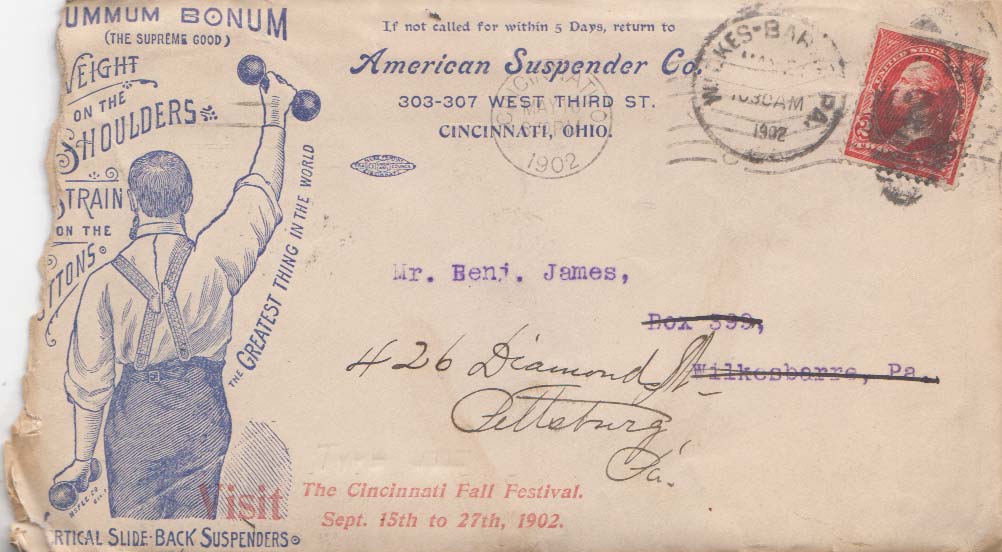 UMMUM BONUM
(THE SUPREME GOOD)
WEIGHT
ON THE
SHOULDERS
STRAIN
ON THE
TTONS
THE GREATEST THING IN THE WORLD
ERTICAL SLIDE-BACK SUSPENDERS
If not called for within 5 Days, return to
American Suspender Co.
303-307 WEST THIRD ST.
CINCINNATI, OHIO.
1902
WILKES-BARRE PA.
1030AM
1902
UNITED STATES
Mr. Benj. James,
Box 399,
Wilkesbarre, Pa.
426 Diamond St
Pittsburg,
Pa.
Visit The Cincinnati Fall Festival.
Sept. 15th to 27th, 1902.